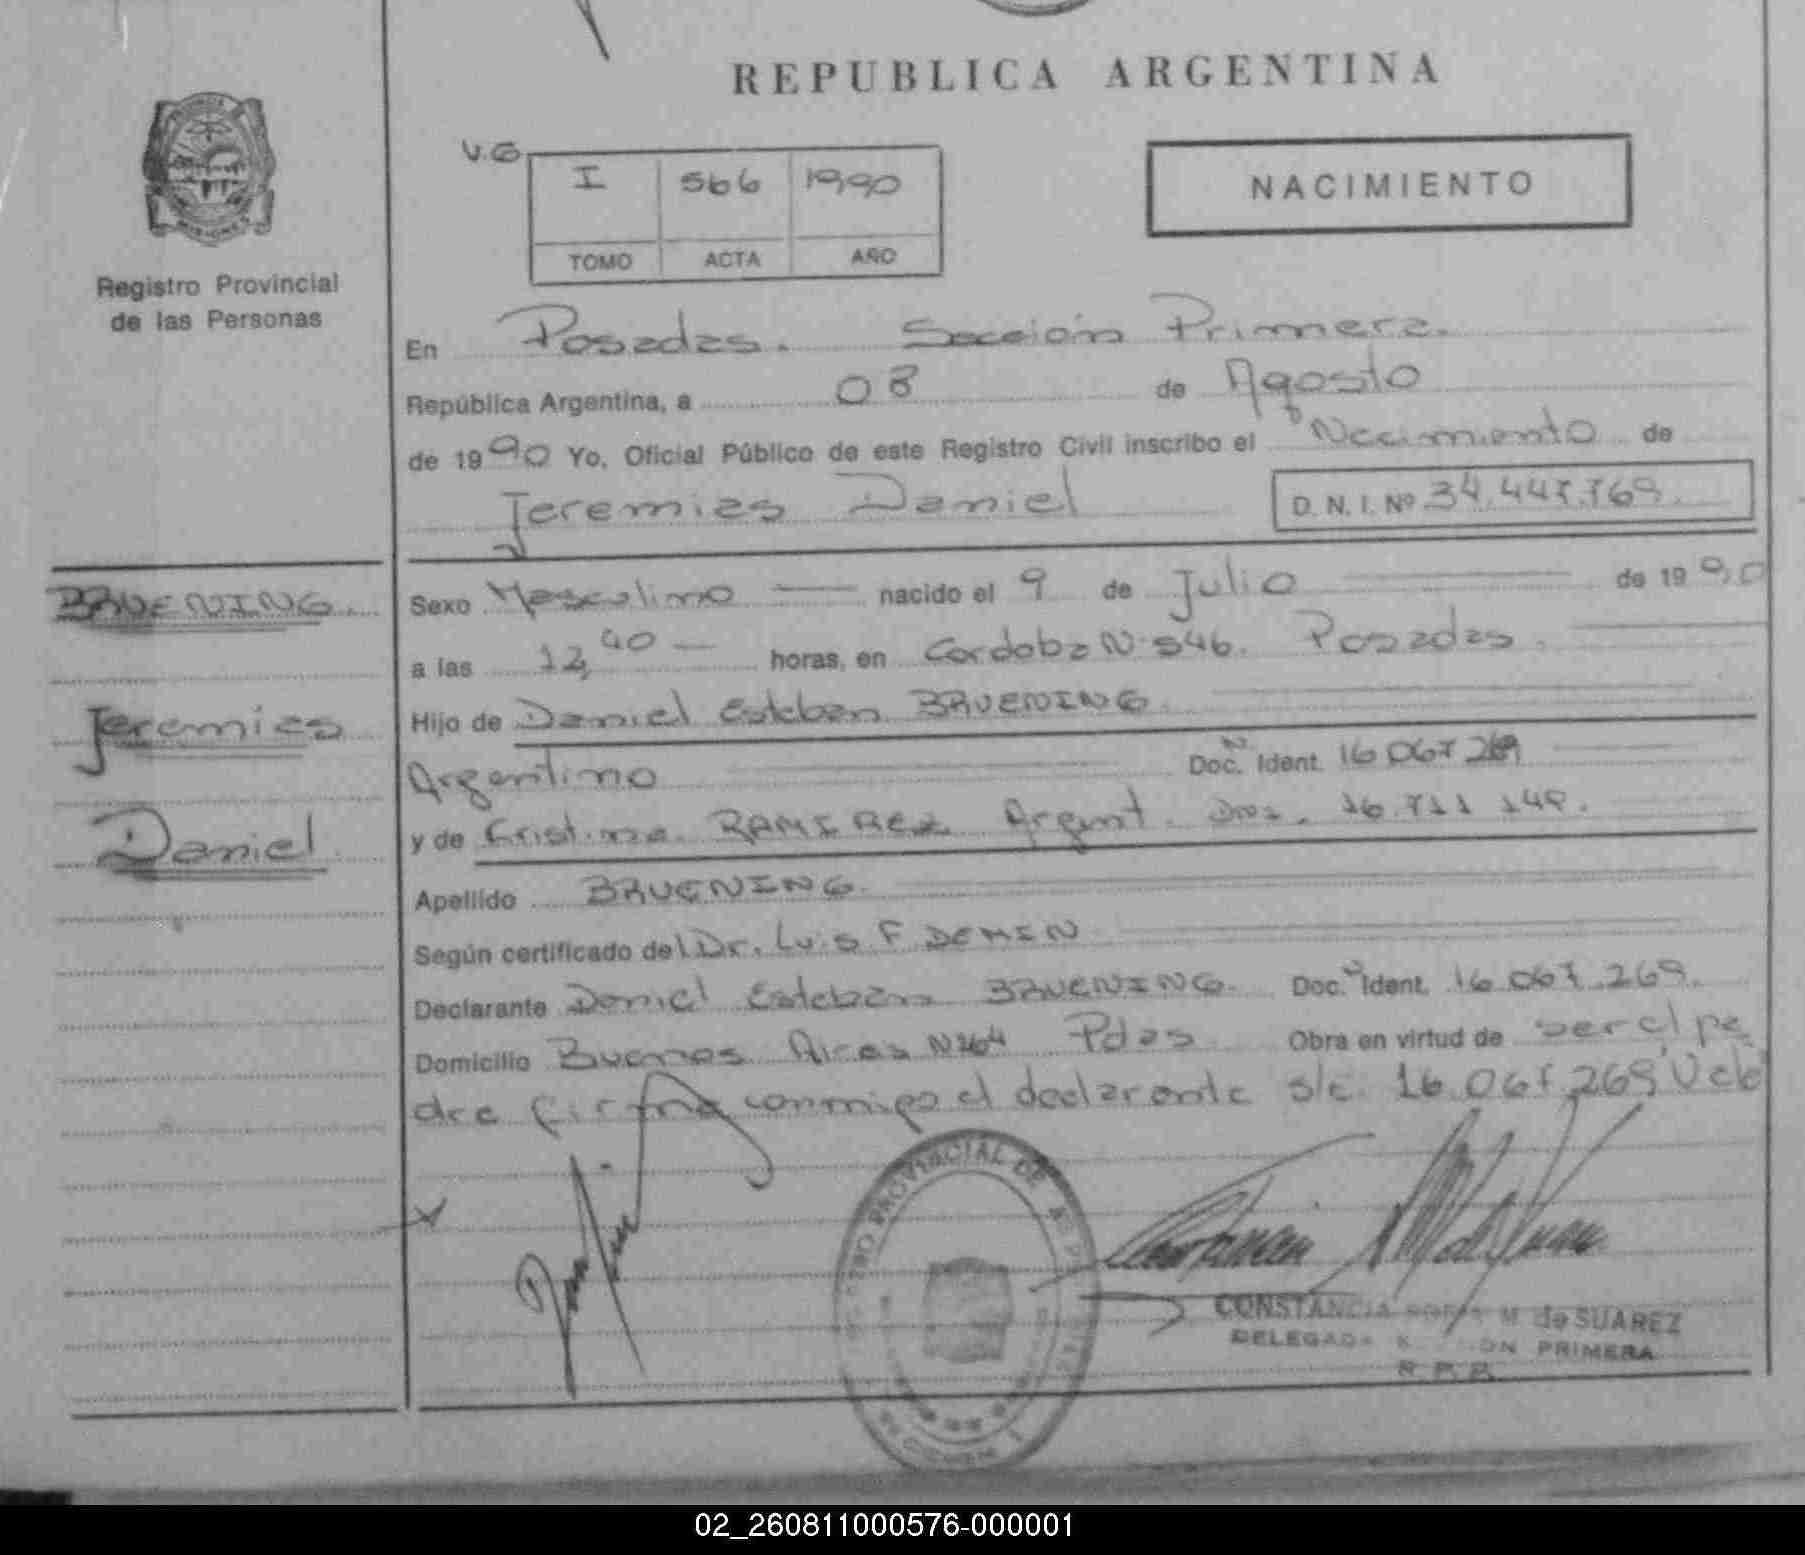 REPUBLICA ARGENTINA
V.G
I 566 1990
TOMO ACTA AÑO
NACIMIENTO
Registro Provincial
de las Personas
En Posadas. Sección Primera.
República Argentina, a 08 de Agosto
de 1990 Yo, Oficial Público de este Registro Civil inscribo el Nacimiento de
Jeremias Daniel D. N. I. Nº 34.447.769.
BRUENING.
Jeremias
Daniel
Sexo Masculino nacido el 9 de Julio de 1990
a las 12,40 horas, en Cordoba Nº 546. Posadas.
Hijo de Daniel Esteban BRUENING
Argentino Doc. Ident. 16 067 269
y de Cristina RAMIREZ Argent.
Apellido BRUENING.
Según certificado del Dr. Luis F DEMIN
Declarante Daniel Esteban BRUENING. Doc. Ident. 16.067.269.
Domicilio Buenos Aires Nº 264 Pdas Obra en virtud de ser el pa
dre firma conmigo el declarante s/c. 16.067.269
REGISTRO PROVINCIAL DE
CONSTANCIA M de SUAREZ
DELEGADA PRIMERA
R.P.P.
02_260811000576-000001